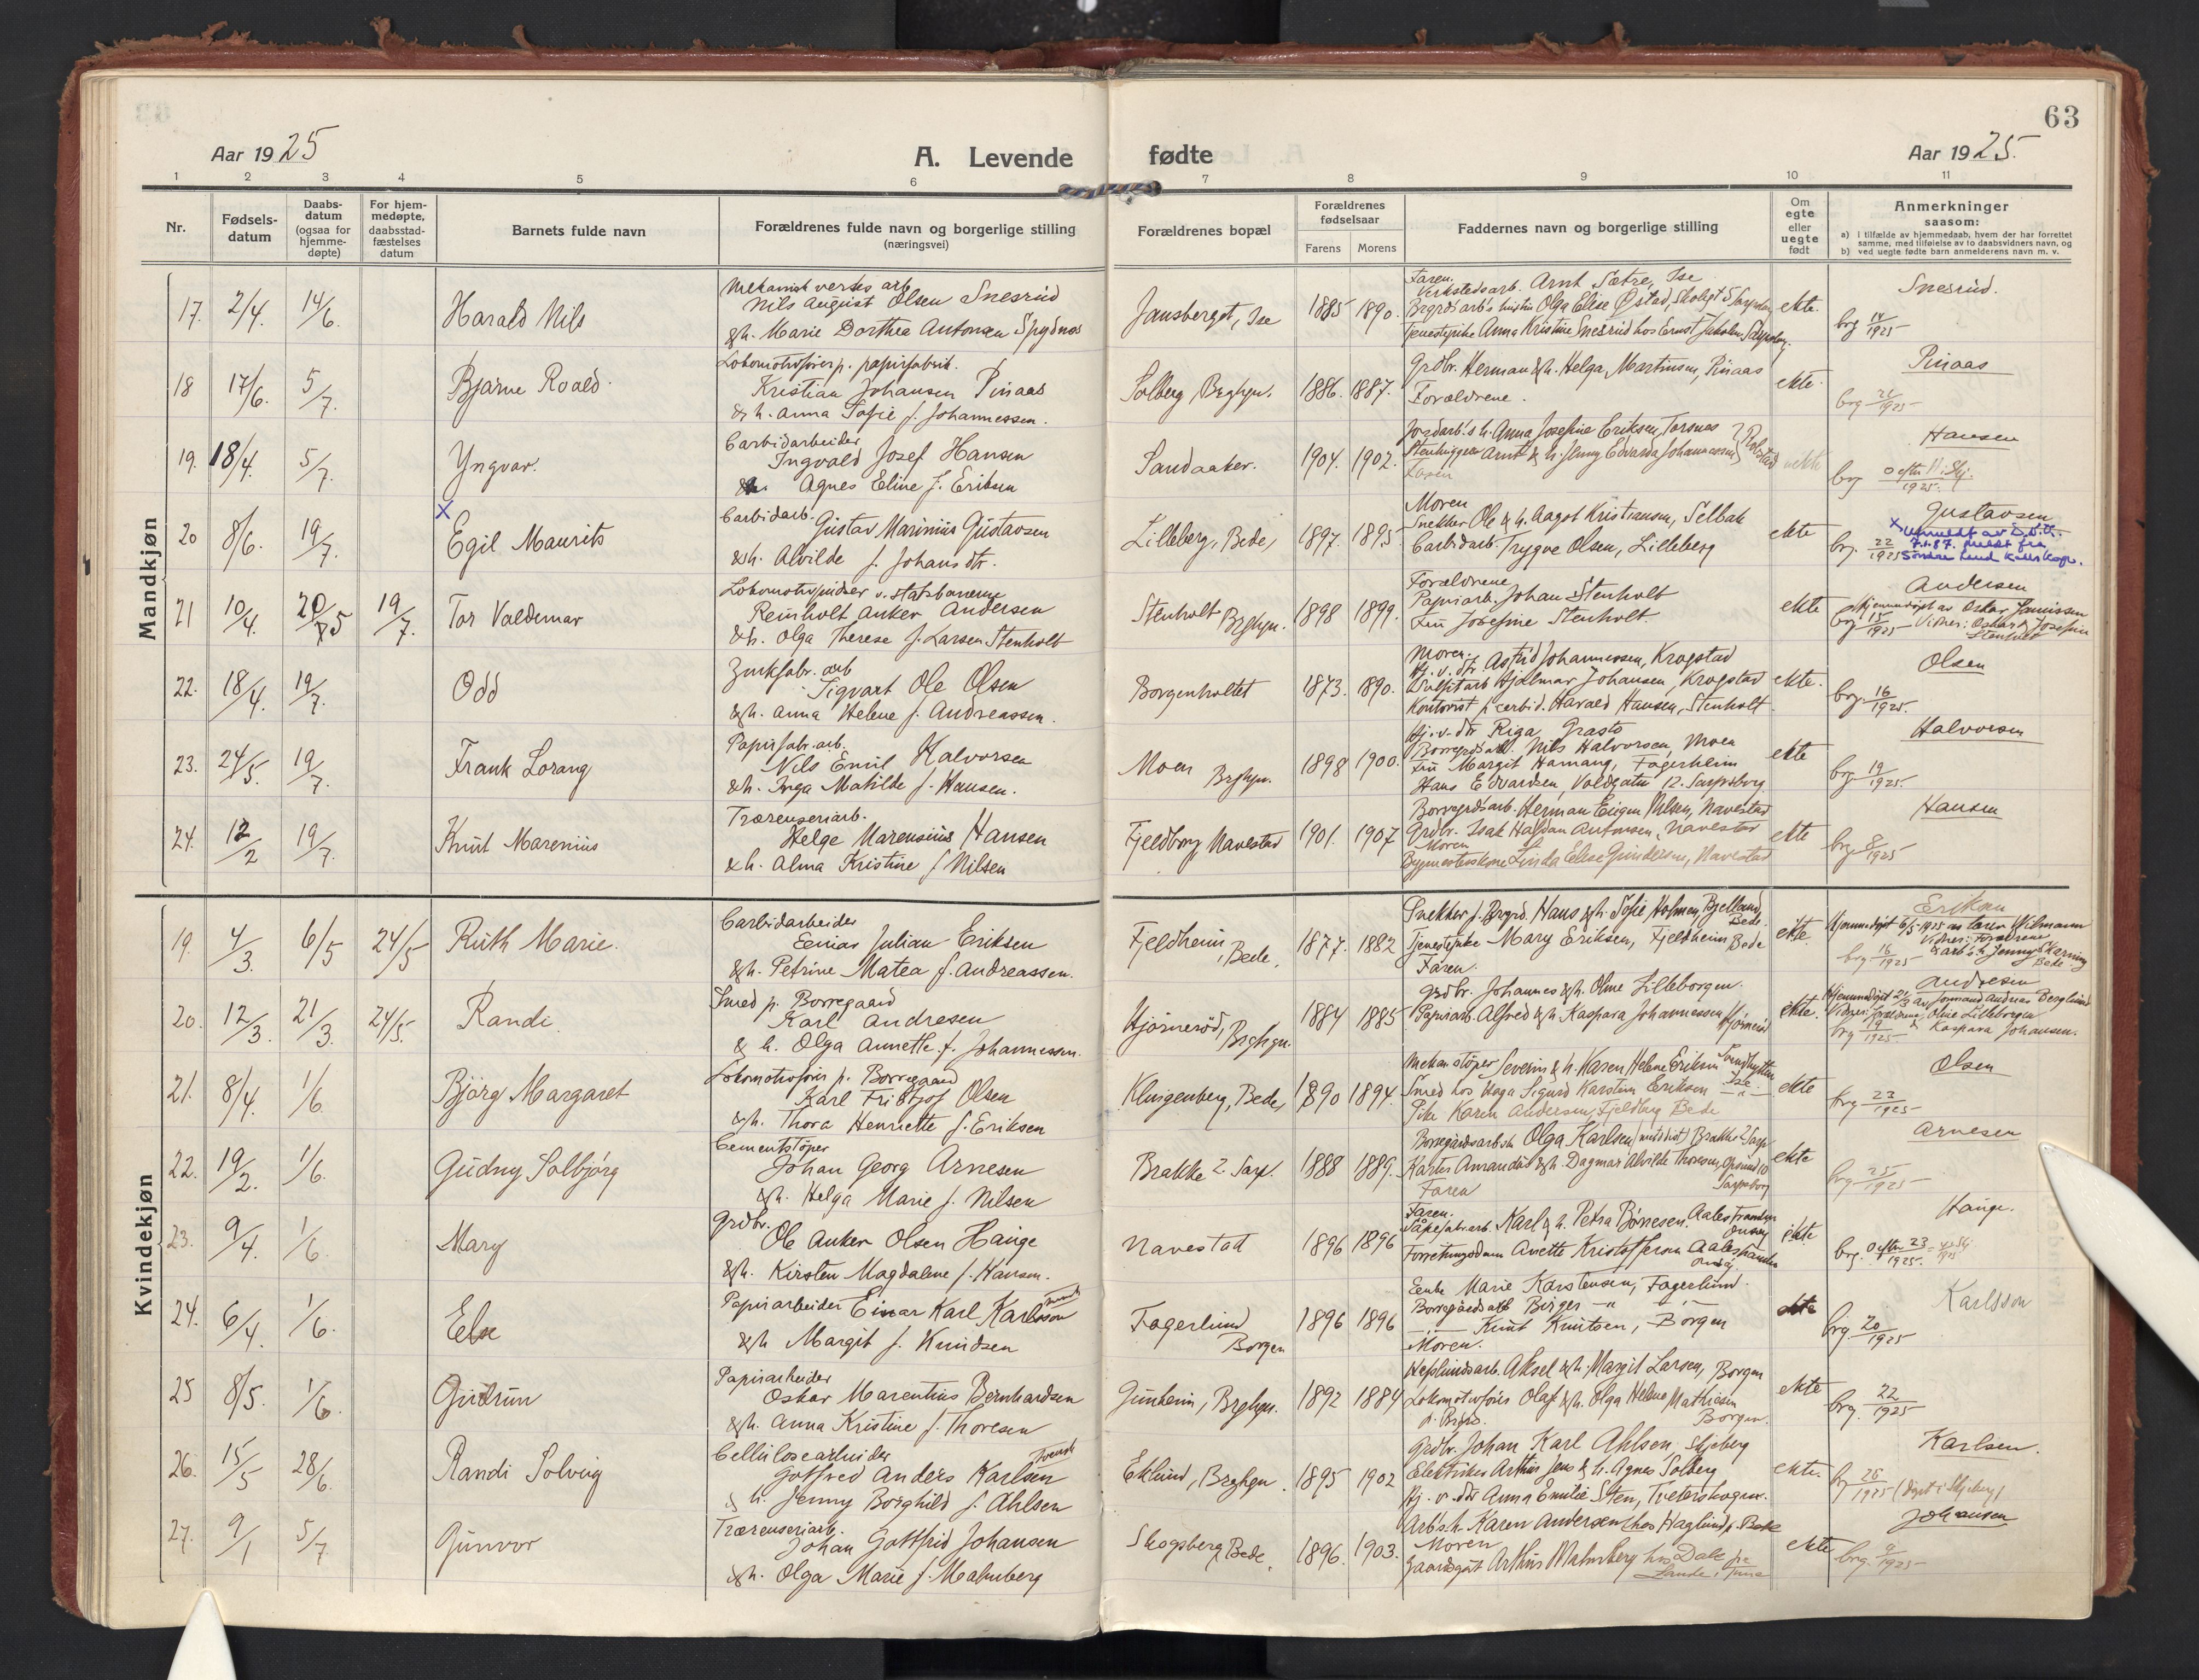 63
Aar 1925
A. Levende fødte
Aar 1925.
1 2 3 4 5 6 7 8 9 10 11
Nr.
Fødsels-
datum
Daabs-
datum
(ogsaa for
hjemme-
døpte)
For hjem-
medøpte,
daabsstad-
fæstelses
datum
Barnets fulde navn
Forældrenes fulde navn og borgerlige stilling
(næringsvei)
Forældrenes bopæl
Forældrenes
fødselsaar
Farens Morens
Faddernes navn og borgerlige stilling
Om
egte
eller
uegte
født
Anmerkninger
saasom:
a) i tilfælde av hjemmedaab, hvem der har forrettet
samme, med tilføielse av to daabsvidners navn, og
b) ved uegte fødte barn anmelderens navn m. v.
Mandkjøn
17. 2/4. 14/6. Harald Nils
Mekanisk verks arb
Nils August Olsen Snesrud
&h. Marie Dorthea Antonsen Spydnes
Jansberget, Ise 1885 1890.
Faren.
Verkstedsarb. Arnt Sætre, Ise
Brgrds arb's hustru Olga Elise Østad, Skolegt 5 Sarpsborg
Tjenestepike Anna Kristine Snesrud hos Ernst Jakobsen Sarpsborg.
ekte. Snesrud.
brg 14/1925
18 17/6. 5/7. Bjarne Roald
Lokomotivfører p. papirfabrik.
Kristian Johansen Pinaas
& h. Anna Sofie f. Johannessen.
Solberg, Brghgn. 1886. 1887.
Grdbr. Herman &h. Helga Martinsen, Pinaas
Forældrene.
ekte. Pinaas
brg 21/1925
19. 18/4. 5/7. Yngvar.
Carbidarbeider
Ingvald Josef Hansen
&h. Agnes Eline f. Eriksen
Sandaaker. 1904. 1902.
Jordarb.'s h. Anna Josefine Eriksen, Torsnes
Stenhugger Arnt & h. Jenny Edvarda Johannessen
Faren
Hansen
brg 0 efter 11. Skj. 1925.
20 8/6. 19/7. x Egil Maurits
Carbidarb. Gustav Marinius Gustavsen
&h. Alvilde f. Johansdtr.
Lilleberg, Bede, 1897. 1895
Moren
Snekker Ole & h. Aagot Kristiansen, Selbak
Carbidarb. Trygve Olsen, Lilleberg
ekte Gustavsen
x utmeldt av D.n.K.
7.1.87. meldt fra
Søndre Land k.allskap.
brg. 22/1925
21 10/4. 20/5 19/7. Tor Valdemar
Lokomotivpudser v. statsbanerne
Reinholt Anker Andersen
&h. Olga Therese f. Larsen Stenholt
Stenholt Brghgn. 1898 1899.
Forældrene
Papirarb. Johan Stenholt
Fru Josefine Stenholt.
ekte Andersen
Hjemmedøpt av Oskar Jamissen
brg 15/1925 Vidner: Oskar & Josefine
Stenholt
22. 18/4. 19/7. Odd
Zinkfabr. arb
Sigvart Ole Olsen
&h. Anna Helene f. Andreassen.
Borgenholtet 1873. 1890.
Moren.
Hj. v. dtr. Astrid Johannessen, Krogstad
Sulfitarb Hjalmar Johansen, Krogstad
Kontorist p carbid. Harald Hansen, Stenholt.
ekte. Olsen
brg. 16/1925.
23. 24/5. 19/7. Frank Lorang
Papirfabr. arb.
Nils Emil Halvorsen
&h. Inga Matilde f. Hansen.
Moen Brghgn. 1898 1900.
Hj. v. dtr Riga Grasto
Borregrds arb. Nils Halvorsen, Moen
Fru Margit Hamang, Fagerheim
Hans Edvardsen, Voldgaten 12. Sarpsborg
ekte Halvorsen
brg. 19/1925
24. 12/2 19/7. Knut Marenius
Trærenseriarb.
Helge Marensius Hansen
& h. Alma Kristine f Nilsen
Fjeldborg, Navestad 1901. 1907
Borregrdsarb. Herman Eugen Nilsen, Navestad
Grdbr. Isak Halfdan Antonsen, Navestad
Moren
Bygmesterskone Linda Elise Gundersen, Navestad
ekte Hansen
brg 8/1925
Kvindekjøn
19. 4/3. 6/5 24/5 Ruth Marie.
Carbidarbeider
Eenias Julian Eriksen
&h. Petrine Matea f. Andreassen.
Fjeldheim, Bede. 1877. 1882
Snekker f. Brgrd. Hans &h. Sofie Holmen, Bjelland
Bede.
Tjenestepike Mary Eriksen, Fjeldheim Bede
Faren.
ekte. Eriksen
Hjemmedøpt 6/5-1925 av
Vidner: Forældrene
brg 16/1925 & arb's h. Jenny Skarning
Bede
20. 12/3. 21/3. 24/5. Randi.
Smed p. Borregaard
Karl Andresen
& h. Olga Annette f. Johannessen.
Hjørnerød, Brghgn. 1884 1885
Grdbr. Johannes &h. Oline Lilleborgen.
Papirarb. Alfred &h Kaspara Johannessen Hjørnerød
ekte. Andresen
Hjemmedøpt 21/3 av Jormand Andreas Berglund
Vidner: Forældrene, Oline Lilleborgen
brg 19/1925 & Kaspara Johansen.
21. 8/4. 1/6 Bjørg Margaret
Lokomotivfører p. Borregaard
Karl Fridtjof Olsen
&h. Thora Henriette f. Eriksen
Klingenberg, Bede, 1890 1894.
Mekan støper Severin & h. Karen Helene Eriksen Ise
Smed hos Haga Sigurd Karsten Eriksen — " —
Pike Karen Andersen, Fjeldberg Bede
ekte Olsen
brg 23/1925
22. 19/2. 1/6. Gudny Solbjørg
Cementstøper
Johan Georg Arnesen
&h. Helga Marie f. Nilsen
Brakke 2 Sarp. 1888 1889.
Borregårdsarb.s h. Olga Karlsen (metodist) Brakke 2 Sarp
&h. Dagmar Alvilde Thoresen, Opsund 10
Sarpsborg
Faren
ekte Arnesen
brg 25/1925
23. 9/4. 1/6. Mary
Grdbr.
Ole Anker Olsen Hauge
&h. Kirsten Magdalene f. Hansen.
Navestad 1896 1896
Faren.
Såpefabr.arb Karl & h. Petra Børresen. Aalestranden
Onsøy
Forretningsdame Anette Kristoffersen Aalestranden
Onsøy.
ekte Hauge.
brg. 0 efter 23/1925.
24. 6/4. 1/6. Else
Papirarbeider Einar Karl Karlsson svensk
&h Margit f. Knudsen
Fagerlund Borgen 1896 1896
Enke Marie Karstensen, Fagerlund.
Borregårdsarb Birger — " — — " —
— " — Knut Knutsen, Borgen
Moren.
ekte Karlsson
brg. 20/1925
25 8/5. 1/6. Gudrun
Papirarbeider
Oskar Marentius Bernhardsen
&h. Anna Kristine f. Thoresen
Gunheim, Brghgn. 1892 1884
Hafslundsarb. Aksel &h. Margit Larsen, Borgen
Lokomotivfører Olaf &h. Olga Helene Mathiesen
p. Brgrd. Borgen.
ekte
brg. 22/1925
26. 15/5 28/6. Randi Solveig
Cellulosearbeider
Gotfred Anders Karlsen svensk
& h. Jenny Borghild f. Ahlsen
Eklund, Brghgn. 1895 1902
Grdbr. Johan Karl Ahlsen, Skjeberg
Elektriker Arthur Jens & h. Agnes Solberg
Hj. v. dtr Anna Emilie Sten, Tveterskogen.
ekte. Karlsen.
brg 26/1925 (døpt i Skjeberg)
27. 9/1 5/7 Gunvor
Trærenseriarb.
Johan Gotfrid Johansen
&h. Olga Marie f. Malmberg
Skogsberg, Bede. 1896. 1903.
Arb's h. Karen Andersen (hos Haglund) p. Bede
Moren
Gaardsgut Arthur Malmberg hos Dale
ekte Johansen
brg. 9/1925